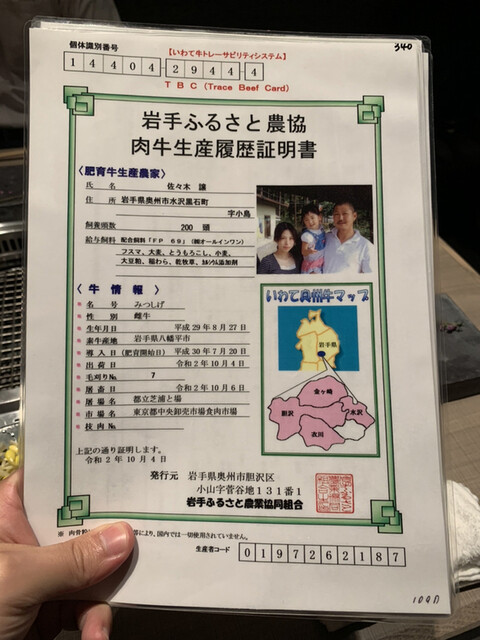 340
個体識別番号
【いわて牛トレーサビリティシステム】
14404-2944-4
TBC(Trace Beef Card)
岩手ふるさと農協
肉牛生産履歴証明書
〈肥育牛生産農家〉
氏名 佐々木 譲
住所 岩手県奥州市水沢黒石町
字小島
飼養頭数 200 頭
給与飼料 配合飼料「FP 69」(㈱オールインワン)
フスマ、大麦、とうもろこし、小麦、
大豆粕、稲わら、乾牧草、カルシウム添加剤
〈牛情報〉
* 名号 みつしげ
* 性別 雌牛
* 生年月日 平成29年8月27日
* 素牛生産地 岩手県八幡平市
* 導入日(肥育開始日) 平成30年7月20日
* 出荷日 令和2年10月4日
* 毛刈りNo. 7
* 屠畜日 令和2年10月6日
* 屠場名 都立芝浦と場
* 市場名 東京都中央卸売市場食肉市場
* 枝肉No.
いわて奥州牛マップ
岩手県
金ヶ崎
胆沢
水沢
衣川
上記の通り証明します。
令和2年10月4日
発行元 岩手県奥州市胆沢区
小山字菅谷地131番1
岩手ふるさと農業協同組合
※ 肉骨粉
等により、国内では一切使用されていません。
生産者コード 0197262187